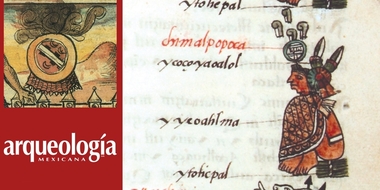 arqueología
MEXICANA
ytohepal
chimalpopoca
ycoçoyaoalol
ytohepal